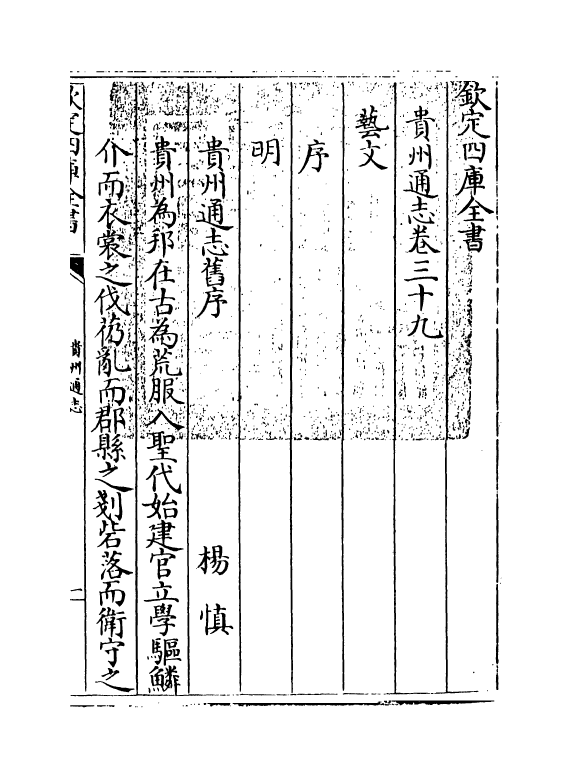 欽定四庫全書
貴州通志卷三十九
藝文
序
明
貴州通志舊序 楊慎
貴州為邦在古為荒服入聖代始建官立學驅鱗
介而衣裳之伐菢亂而郡縣之剗砦落而衛守之
欽定四庫全書
貴州通志
一